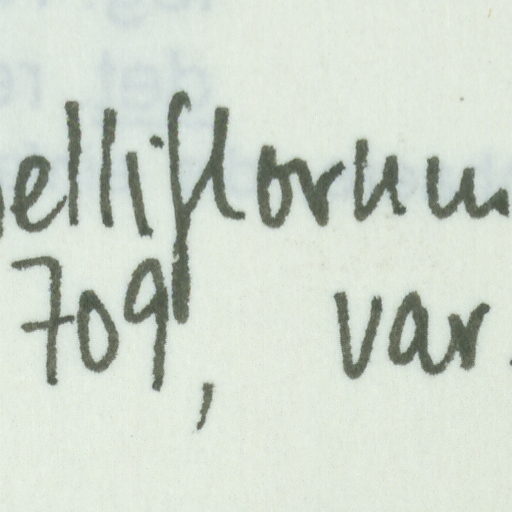 elliflorum
709, var.